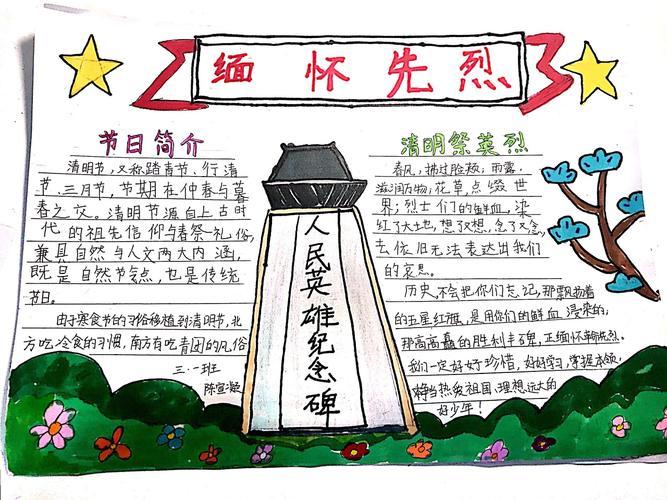 缅怀先烈
节日简介
清明节，又称踏青节、行清
节、三月节，节期在仲春与暮
春之交。清明节源自上古时
代的祖先信仰与春祭礼俗，
兼具自然与人文两大内涵，
既是自然节气点，也是传统
节日。
由于寒食节的习俗移植到清明节，北
方吃冷食的习惯，南方有吃青团的风俗
三.一班
陈宣颖
人民英雄纪念碑
清明祭英烈
春风，拂过脸颊；雨露，
滋润万物；花草，点缀世
界；烈士们的鲜血，染
红了大地，想了又想，念了又念，
去依旧无法表达出我们
的哀思。
历史，不会把你们忘记，那飘扬着
的五星红旗，是用你们的鲜血浸染的，
那高高矗的胜利丰碑，正缅怀
我们一定好好珍惜，好好学习，掌握本领，
将当热爱祖国、理想远大的
好少年！